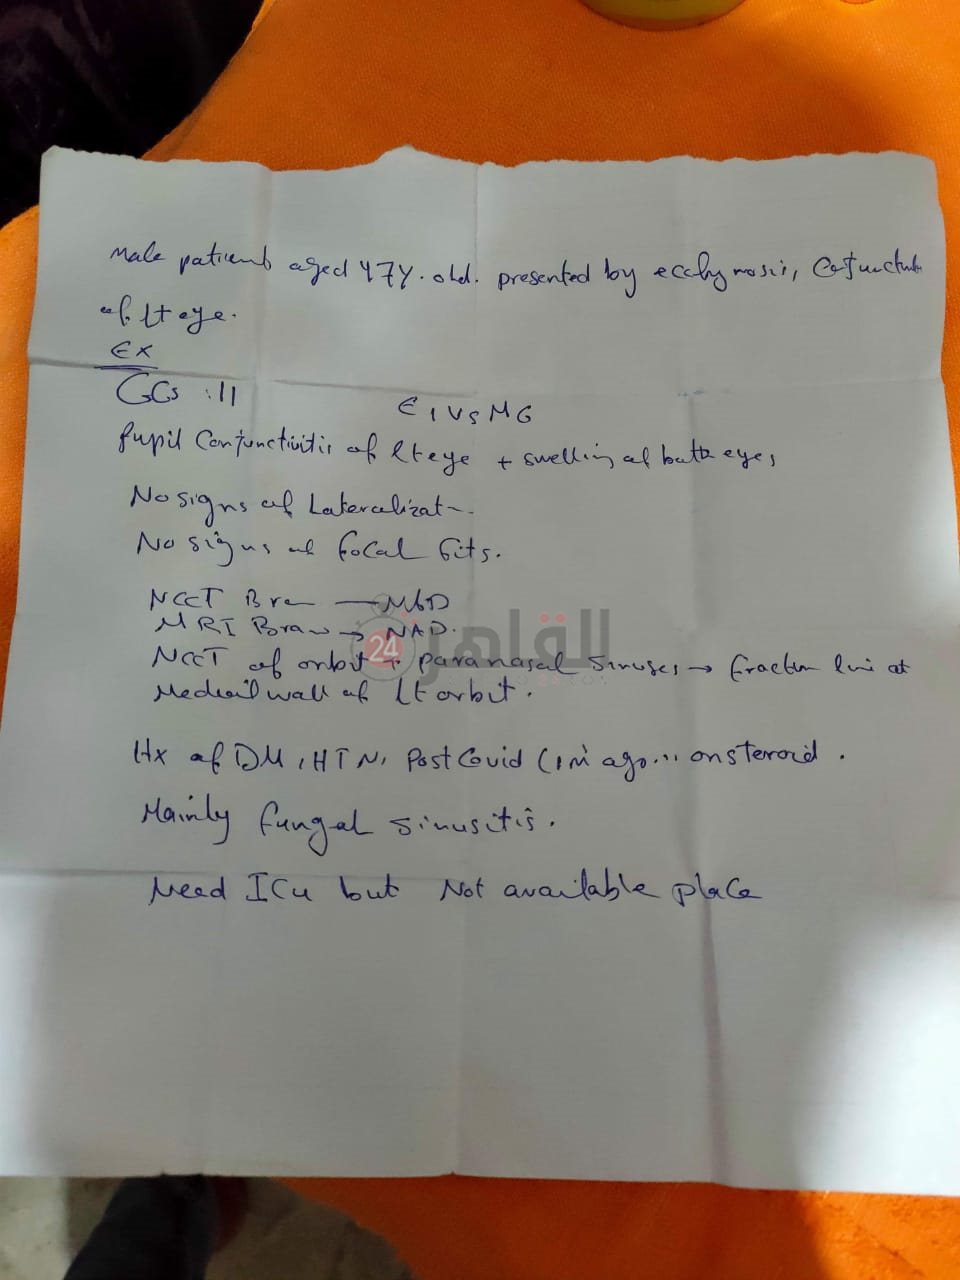 Male patient aged 47y. old. presented by ecchymosis,
of lt eye.
Ex
GCS : 11
E1V5M6
pupil Conjunctivitis of lt eye + swelling of both eyes
No signs of Lateralizat
No signs of focal fits.
NCCT → NAD
MRI Brain → NAD.
القاهرة 24
NCCT of orbit + paranasal sinuses → line at
wall of lt orbit.
Hx of DM, HTN, Post Covid (1m ago... on steroid.
Mainly fungal sinusitis.
Need ICU but Not available place